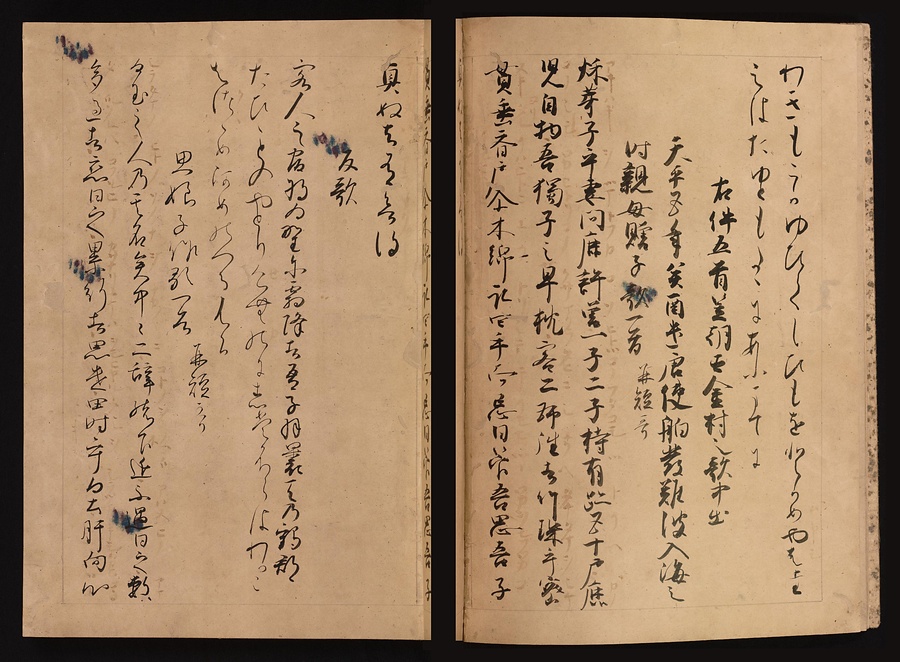 わきもこかゆひてしひもをとかめやもた
えはたゆともたゝにあふまてに
右件五首笠朝臣金村之歌中出
天平五年癸酉遣唐使舶發難波入海之
時親母贈子歌一首 并短哥
秋芽子乎妻問鹿許曽一子二子持有跡五十戸鹿
兒自物吾獨子之草枕客二師往者竹珠乎密
貫垂齋戸尓木綿取四手而忌日管吾思吾子
真好去有欲得
反歌
客人之宿将為野尓霜降者吾子羽裹天乃鶴群
たひ人のやとりせむのにしもふらはわかこ
はくゝめあめのつるむら
思娘子作歌一首 并短哥
白玉之人乃其名矣中々二辞緒下延不遇日之數
多過者戀日之累行者思遣田時乎白土肝向心